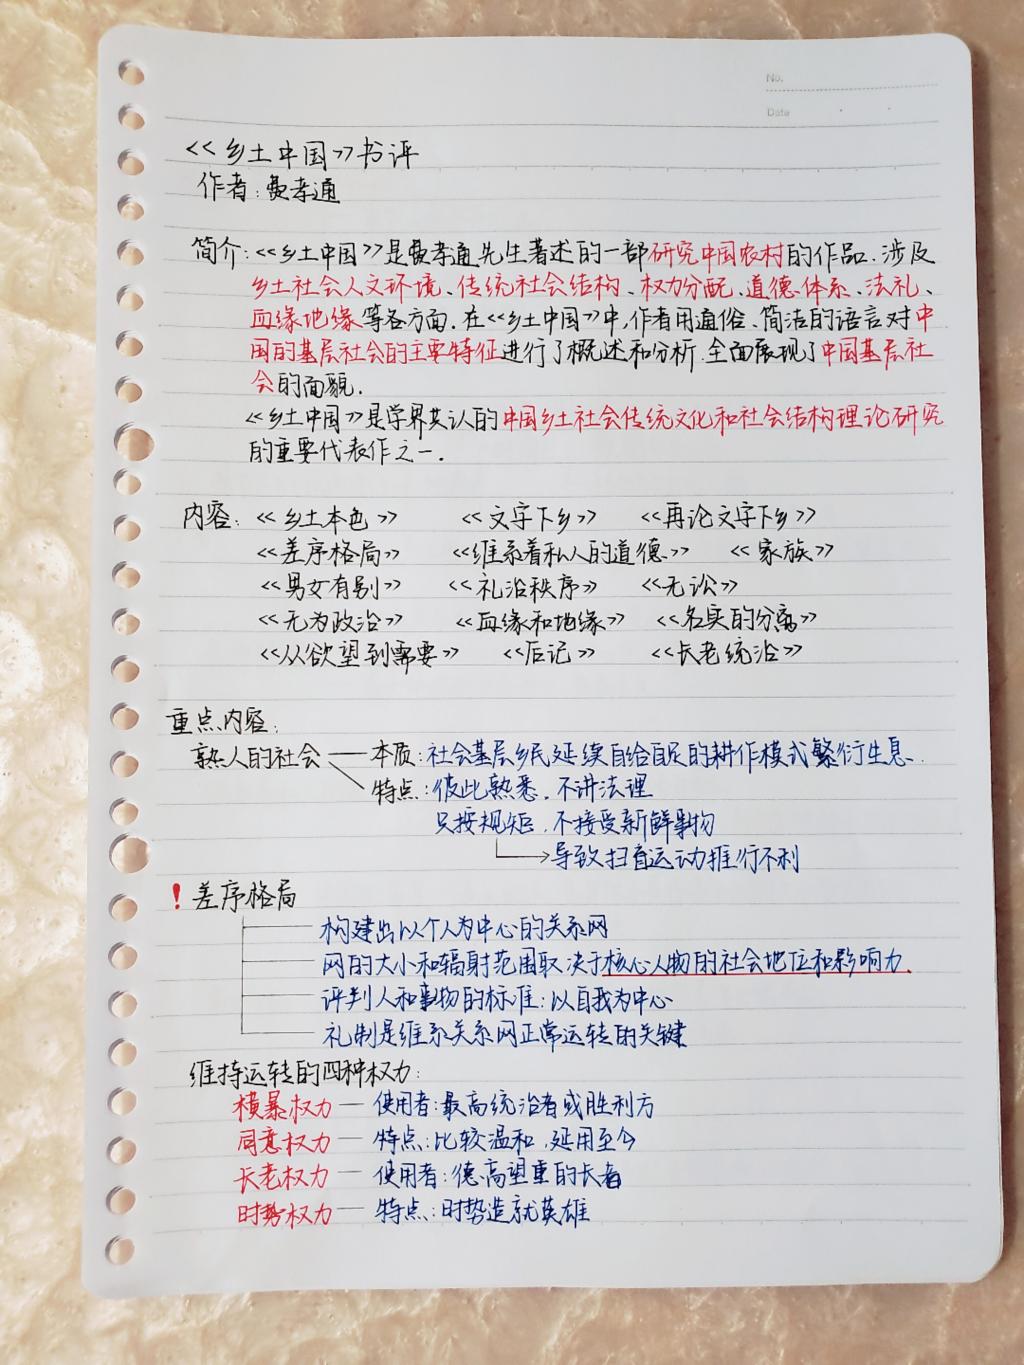 No.
Date
<<乡土中国>>书评
作者:费孝通
简介:<<乡土中国>>是费孝通先生著述的一部研究中国农村的作品.涉及
乡土社会人文环境、传统社会结构、权力分配、道德体系、法礼、
血缘地缘等各方面.在<<乡土中国>>中,作者用通俗、简洁的语言对中
国的基层社会的主要特征进行了概述和分析.全面展现了中国基层社
会的面貌.
<<乡土中国>>是学界共认的中国乡土社会传统文化和社会结构理论研究
的重要代表作之一.
内容: <<乡土本色>> <<文字下乡>> <<再论文字下乡>>
<<差序格局>> <<维系着私人的道德>> <<家族>>
<<男女有别>> <<礼治秩序>> <<无讼>>
<<无为政治>> <<血缘和地缘>> <<名实的分离>>
<<从欲望到需要>> <<后记>> <<长老统治>>
重点内容:
熟人的社会 — 本质:社会基层乡民延续自给自足的耕作模式繁衍生息.
特点:彼此熟悉.不讲法理
只按规矩.不接受新鲜事物
→导致扫盲运动推行不利
!差序格局
构建出以个人为中心的关系网
网的大小和辐射范围取决于核心人物的社会地位和影响力.
评判人和事物的标准:以自我为中心
礼制是维系关系网正常运转的关键
维持运转的四种权力:
横暴权力 — 使用者:最高统治者或胜利方
同意权力 — 特点:比较温和.延用至今
长老权力 — 使用者:德高望重的长者
时势权力 — 特点:时势造就英雄